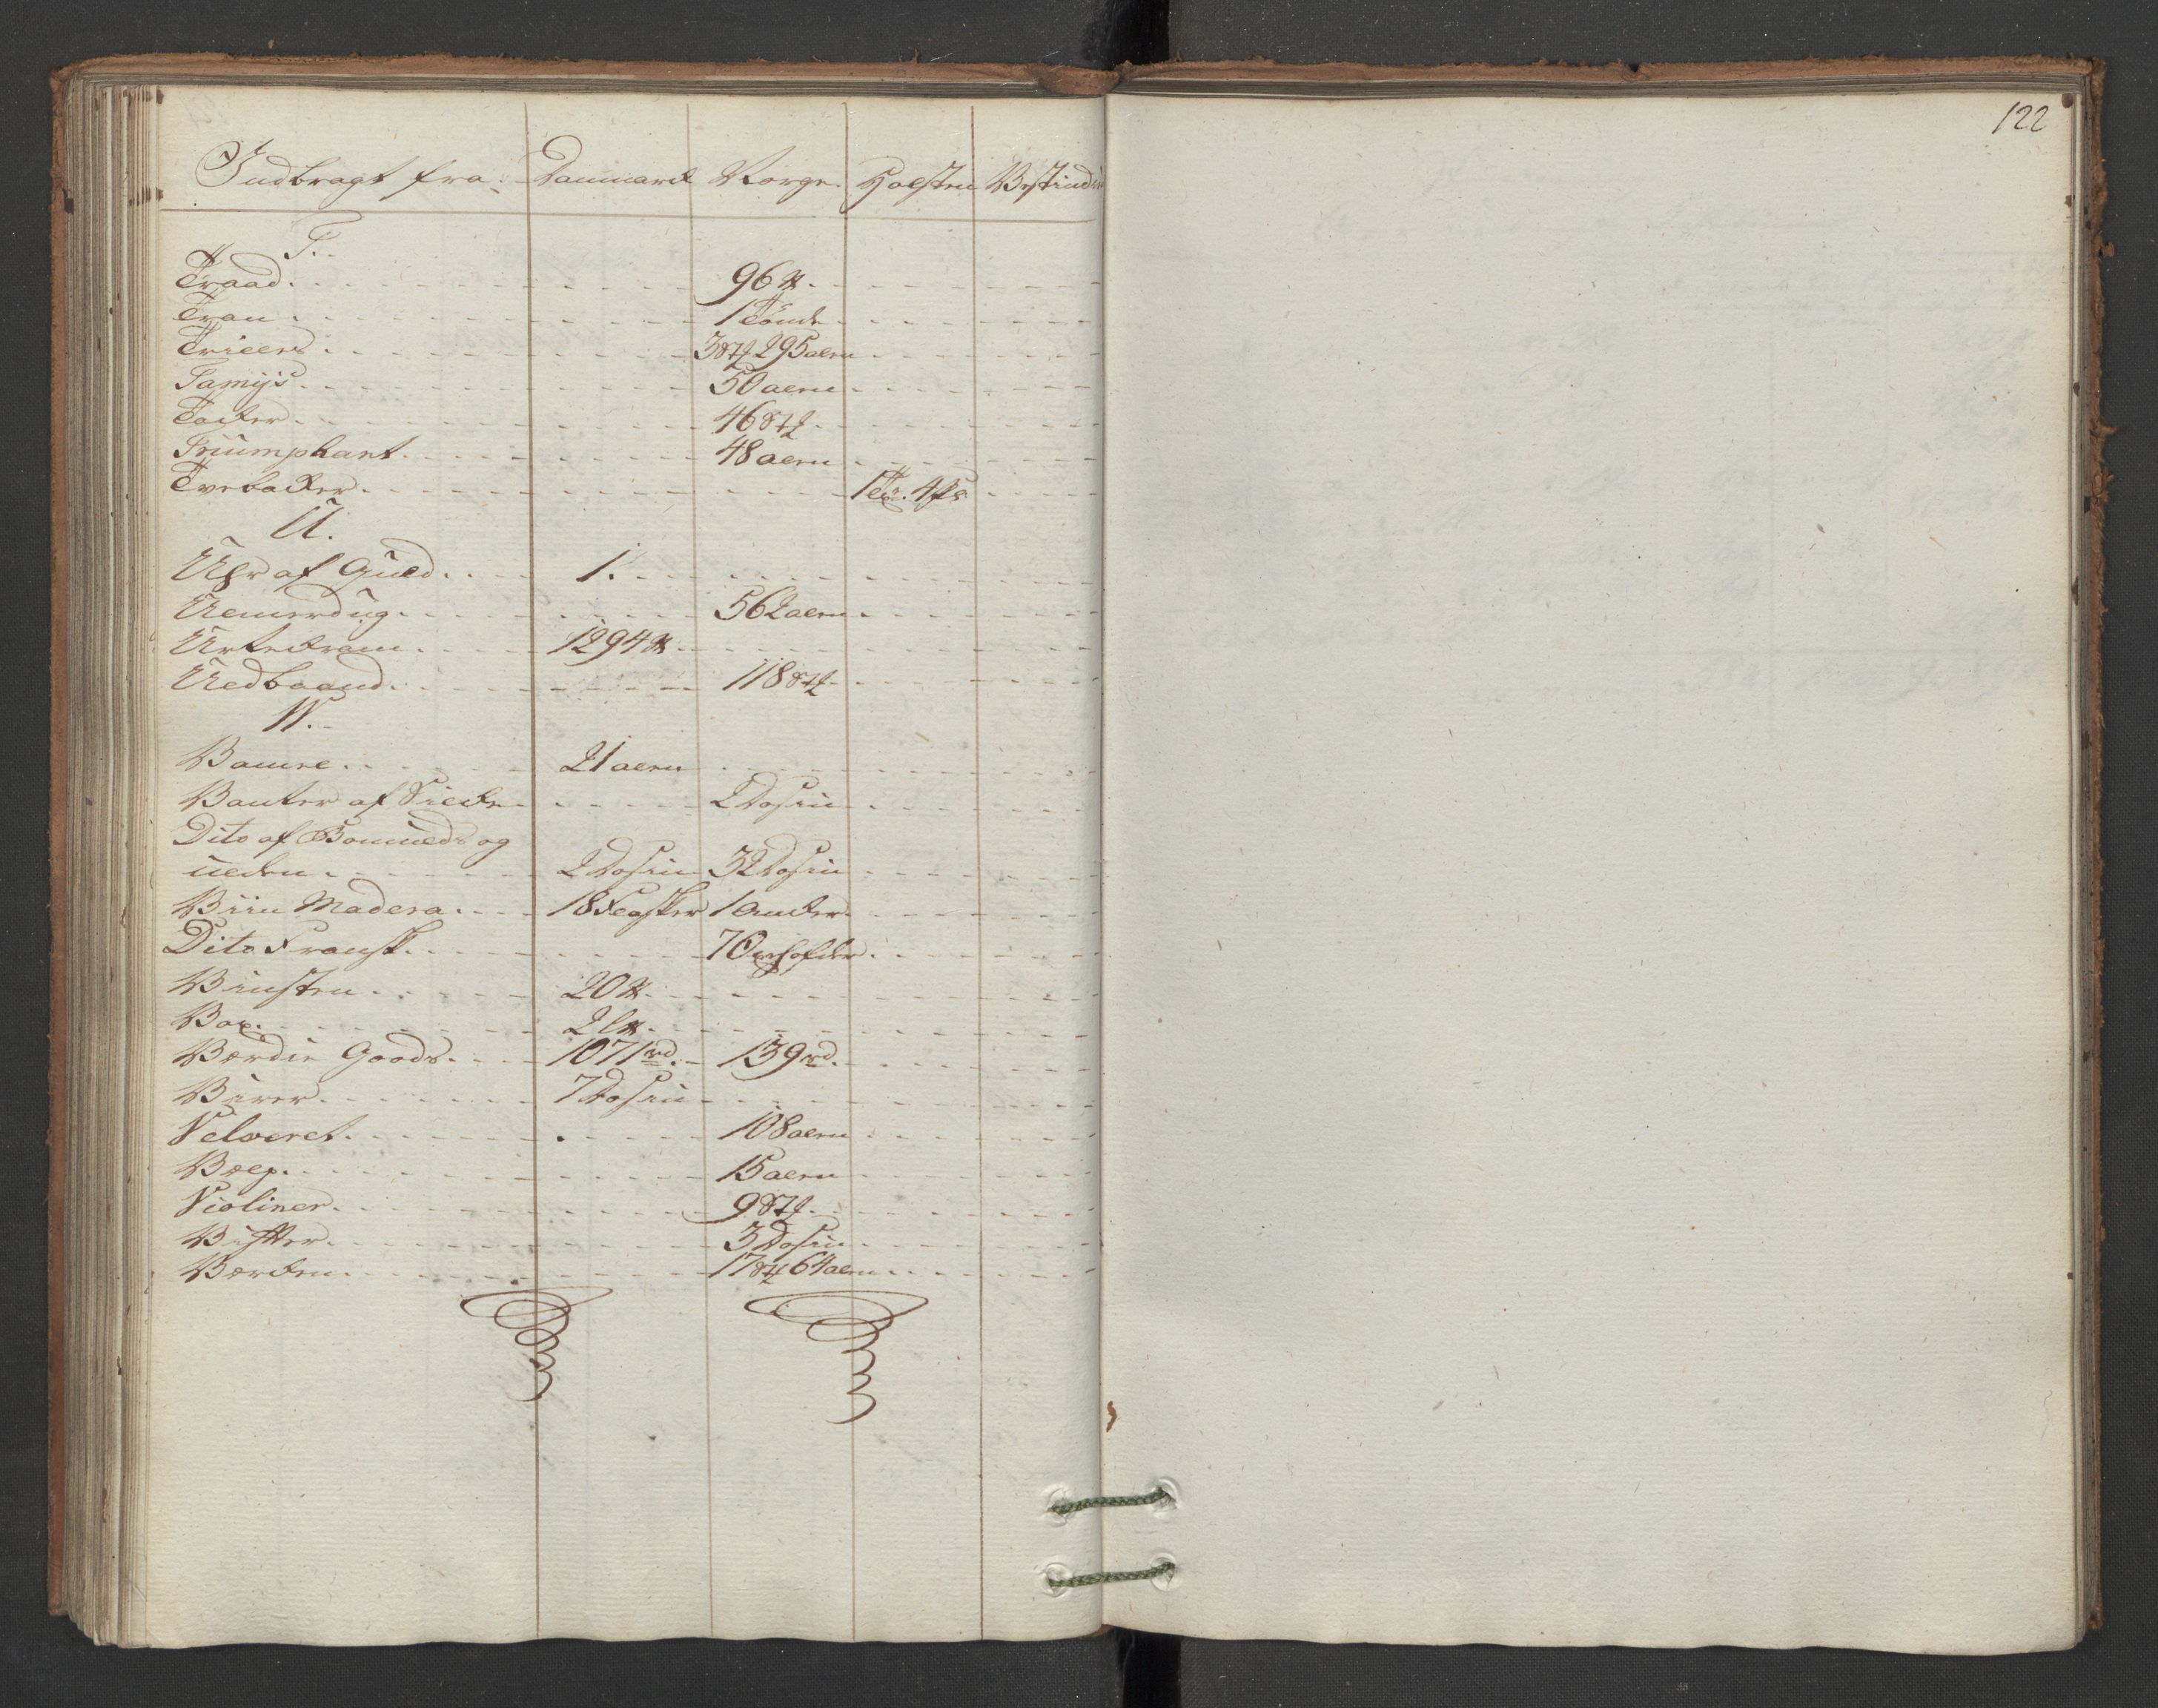 122
Indbragt fra: Danmarck Norge. Holsten Vestindien
T.
Traad. 96 ℔.
Tran. 1 Tønde
Tricers. 3 st 295 alen
Tamÿs. 50 alen
Tacker. 46 st
Triumphant. 48 alen
Tvebacker. 1 Tr. 4 ſk
U.
Uhr af Guld. 1.
Ulmerdug. 562 alen
Urtekram. 1294 ℔.
Uldbaand. 118 st
W.
Vamre. 21 alen
Vanter af Silcke. 2 Dosin
Dito af Bomuld og
ulden. 2 Dosin 32 Dosin
Viin Madera. 18 Flasker 1 Ancker
Dito Fransk. 7 Oxhofder
Viinsten. 20 ℔.
Vox. 2 L℔.
Værdie Goods. 1071 rd. 139 rd.
Virer. 7 Dosin
Velveret. 108 alen
Vælg. 15 alen
Violiner. 9 st.
Vifter. 3 Dosin
Vercken. 17 st 64 alen